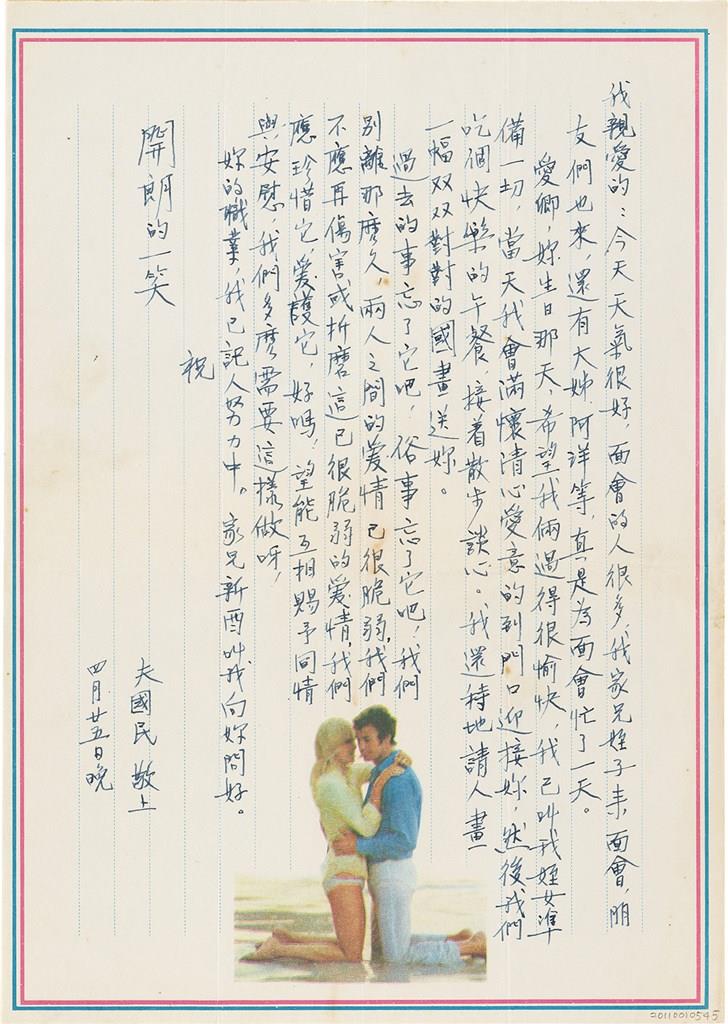 我親愛的：今天天氣很好，面會的人很多，我家兄姪子来面會，朋
友們也來，還有大姊，阿洋等，真是為面會忙了一天。
愛卿，妳生日那天，希望我倆過得很愉快，我己叫我姪女準
備一切，當天我會滿懷清心愛意的到門口迎接妳，然後我們
吃個快樂的午餐，接着散步談心。我還特地請人畫
一幅双双對對的國畫送妳。
過去的事忘了它吧，俗事忘了它吧，我們
別離那麽久，兩人之間的愛情己很脆弱，我們
不應再傷害或折磨這已很脆弱的愛情，我們
應珍惜它，愛護它，好嗎，望能互相賜予同情
與安慰，我們多麽需要這樣做呀，
妳的職業，我已託人努力中。家兄新酉叫我向妳問好。
祝
開朗的一笑
夫國民敬上
四月廿五日晚
20110010545